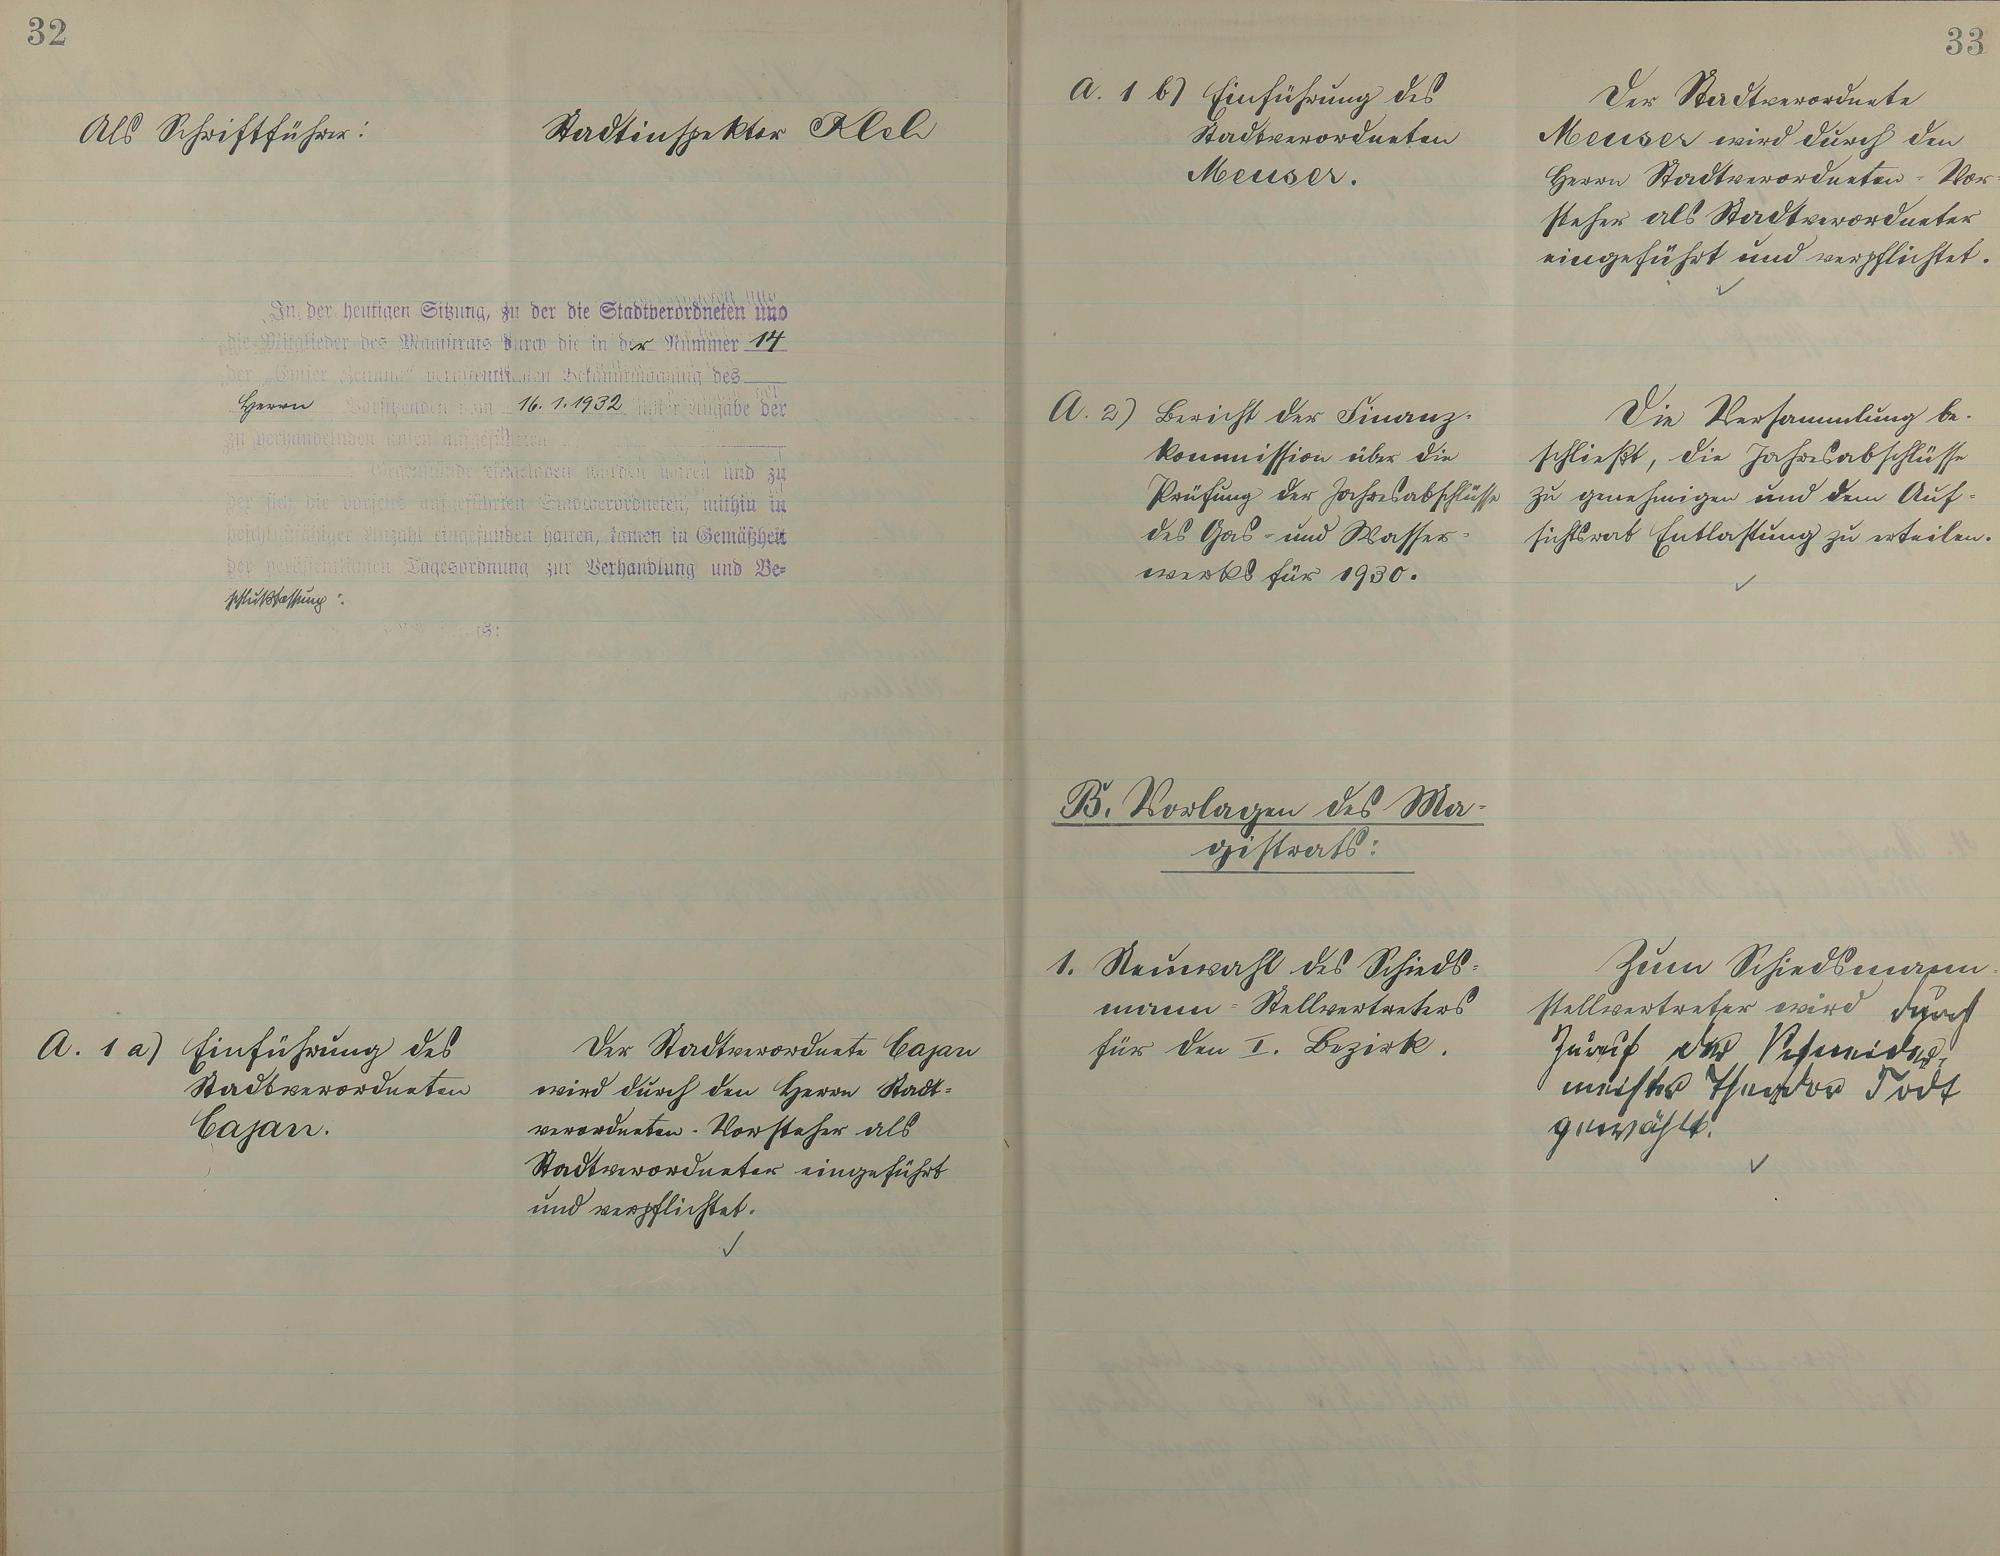 32
Als Schriftführer:
Stadtinspektor
In der heutigen Sitzung, zu der die Stadtverordneten und
die Mitglieder des Magistrats durch die in der Nummer 14
der „Emser Zeitung“ veröffentlichten Bekanntmachung des
Herrn Vorsitzenden vom 16.1.1932 unter Angabe der
zu verhandelnden
Gegenstände eingeladen worden waren und zu
der sich die vorseits aufgeführten Stadtverordneten, mithin in
beschlußfähiger Anzahl eingefunden hatten, kamen in Gemäßheit
der veröffentlichten Tagesordnung zur Verhandlung und Be=
schlußfassung:
A. 1 a) Einführung des
Stadtverordneten
Cajan.
Der Stadtverordnete Cajan
wird durch den Herrn Stadt=
verordneten-Vorsteher als
Stadtverordneter eingeführt
und verpflichtet.
33
A. 1 b) Einführung des
Stadtverordneten
Meuser.
Der Stadtverordnete
Meuser wird durch den
Herrn Stadtverordneten-Vor=
steher als Stadtverordneter
eingeführt und verpflichtet.
A. 2) Bericht der Finanz-
kommission über die
Prüfung der Jahresabschlüsse
des Gas- und Wasser=
werks für 1930.
Die Versammlung be-
schließt, die Jahresabschlüsse
zu genehmigen und dem Auf=
sichtsrat Entlastung zu erteilen.
B. Vorlagen des Ma-
gistrats:
1. Neuwahl des Schieds=
mann=Stellvertreters
für den I. Bezirk.
Zum Schiedsmann=
stellvertreter wird durch
Zuruf der Schneider=
meister Theodor Todt
gewählt.